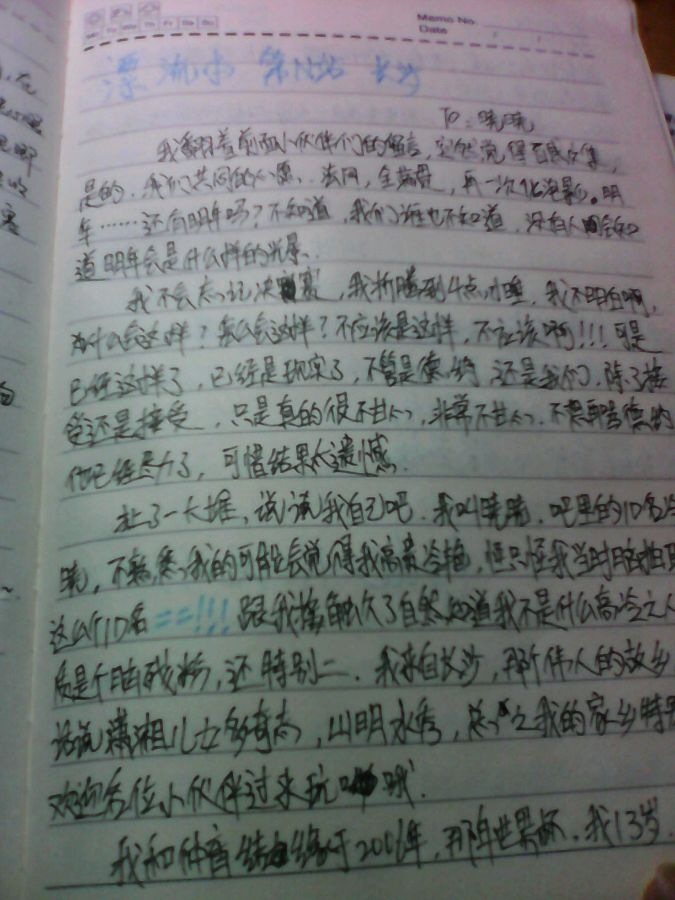 Memo No.
Date
Mo Tu We Th Fr Sa Su
漂流本 第N站 长沙
To：晓晓
我翻着前面小伙伴们的留言，突然觉得百感交集，
是的，我们共同的心愿、法网，全满贯，再一次化泡影。明
年……还有明年吗？不知道，我们谁也不知道，没有人会知
道明年会是什么样的光景、
我不会忘记决赛，我折腾到4点才睡，我不明白啊，
为什么会这样？怎么会这样？不应该是这样，不应该啊！！！可是
已经这样了，已经是现实了，不管是德约，还是我们，除了接
受还是接受，只是真的很不甘心，非常不甘心，不想再苛责德约
他已经尽力了，可惜结果太遗憾.
扯了一大堆、说说我自己吧.我叫晓晓，吧里的ID名冷
晓，不熟悉我的可能会觉得我高贵冷艳，但只怪我当时脑抽取
这么个ID名==!!!跟我接触久了自然知道我不是什么高冷之人
质是个脑残粉，还特别二.我来自长沙，那个伟人的故乡
话说潇湘儿女多奇志，山明水秀，总之我的家乡特别
欢迎各位小伙伴过来玩哦.
我和体育结缘于2006年，那年世界杯.我13岁.